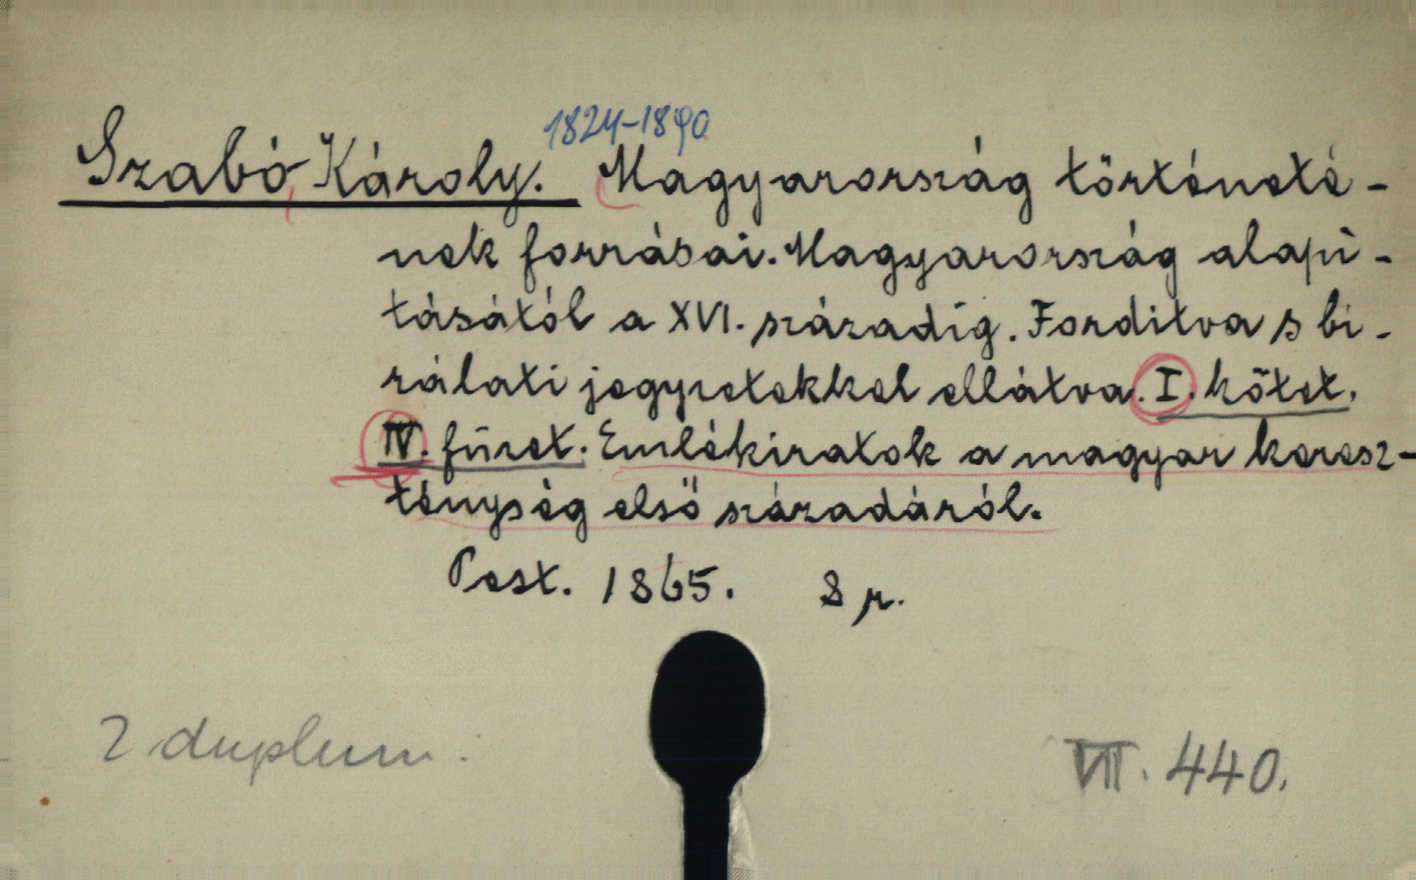 1824-1890
Szabó, Károly. Magyarország történeté-
nek forrásai. Magyarország alapi-
tásától a XVI. századig. Forditva s bi-
rálati jegyzetekkel ellátva. I. kötet.
IV. füzet. Emlékiratok a magyar keresz-
ténység első századáról.
Pest. 1865. 8 r.
2 duplum.
VII. 440.